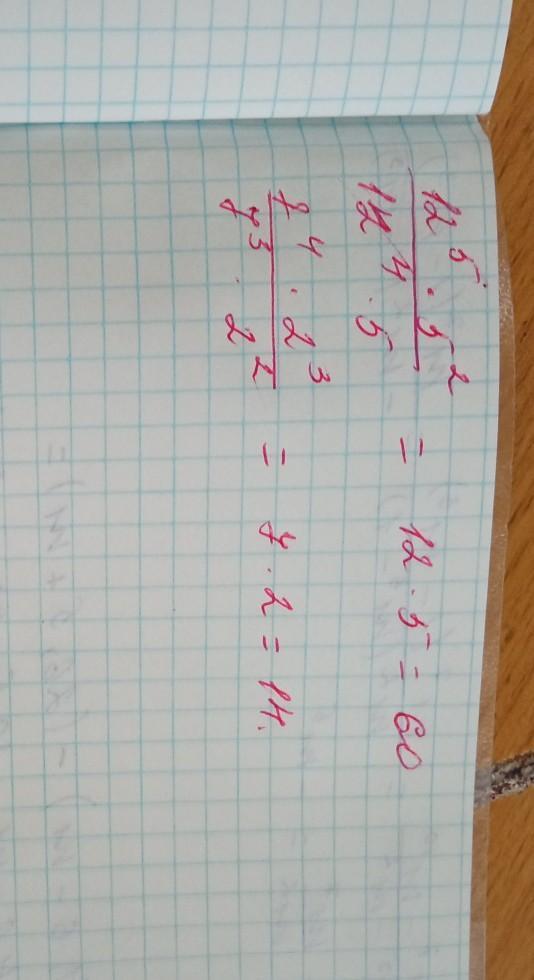 12⁵ · 5² / 12⁴ · 5 = 12 · 5 = 60
7⁴ · 2³ / 7³ · 2² = 7 · 2 = 14.